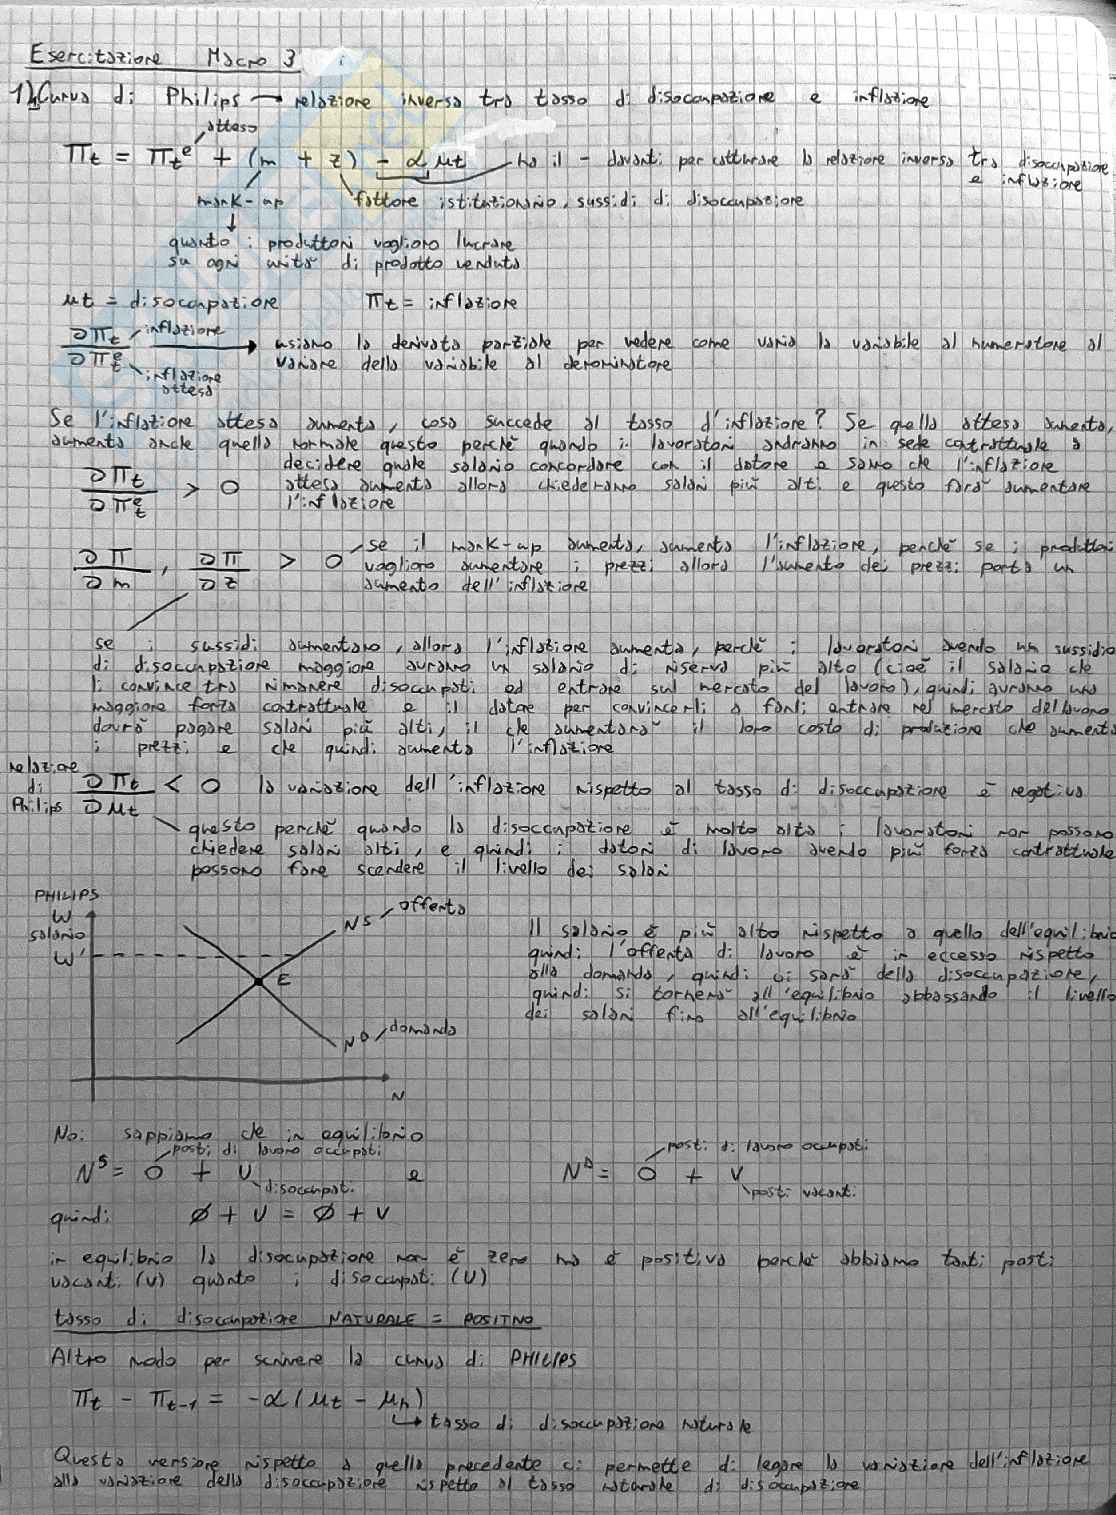 Esercitazione Macro 3
1) Curva di Philips → relazione inversa tra tasso di disoccupazione e inflazione
atteso
πt = πt^e + (m + z) - α μt
ha il - davanti per catturare la relazione inversa tra disoccupazione
e inflazione
mark-up
fattore istituzionario, sussidi di disoccupazione
quanto i produttori vogliono lucrare
su ogni unità di prodotto venduta
μt = disoccupazione πt = inflazione
∂πt / ∂πt^e
inflazione
inflazione
attesa
usiamo la derivata parziale per vedere come varia la variabile al numeratore al
variare della variabile al denominatore
Se l'inflazione attesa aumenta, cosa succede al tasso d'inflazione? Se quella attesa aumenta,
aumenta anche quella normale questo perchè quando i lavoratori andranno in sede contrattuale a
decidere quale salario concordare con il datore e sanno che l'inflazione
∂πt / ∂πt^e > 0
attesa aumenta allora chiederanno salari più alti e questo farà aumentare
l'inflazione
∂π / ∂m , ∂π / ∂z > 0
se il mark-up aumenta, aumenta l'inflazione, perchè se i produttori
vogliono aumentare i prezzi allora l'aumento dei prezzi porta un
aumento dell'inflazione
se i sussidi aumentano, allora l'inflazione aumenta, perchè i lavoratori avendo un sussidio
di disoccupazione maggiore avranno un salario di riserva più alto (cioè il salario che
li convince tra rimanere disoccupati ed entrare sul mercato del lavoro), quindi avranno una
maggiore forza contrattuale e il datore per convincerli a farli entrare nel mercato del lavoro
dovrà pagare salari più alti, il che aumenterà il loro costo di produzione che aumenta
i prezzi e che quindi aumenta l'inflazione
relazione
di
Philips
∂πt / ∂μt < 0 la variazione dell'inflazione rispetto al tasso di disoccupazione è negativa
questo perchè quando la disoccupazione è molto alta i lavoratori non possono
chiedere salari alti, e quindi i datori di lavoro avendo più forza contrattuale
possono fare scendere il livello dei salari
PHILIPS
W
salario
W'
N^S
offerta
E
N^D
domanda
N
Il salario è più alto rispetto a quello dell'equilibrio
quindi l'offerta di lavoro è in eccesso rispetto
alla domanda, quindi ci sarà della disoccupazione,
quindi si tornerà all'equilibrio abbassando il livello
dei salari fino all'equilibrio
Noi sappiamo che in equilibrio
posti di lavoro occupati
N^S = O + U e
disoccupati
posti di lavoro occupati
N^D = O + V
posti vacanti
quindi O + U = O + V
in equilibrio la disocupazione non è zero ma è positiva perchè abbiamo tanti posti
vacanti (V) quanto i disoccupati (U)
tasso di disoccupazione NATURALE = POSITIVO
Altro modo per scrivere la curva di PHILIPS
πt - πt-1 = -α(μt - μn)
tasso di disoccupazione naturale
Questa versione rispetto a quella precedente ci permette di legare la variazione dell'inflazione
alla variazione della disoccupazione rispetto al tasso naturale di disoccupazione